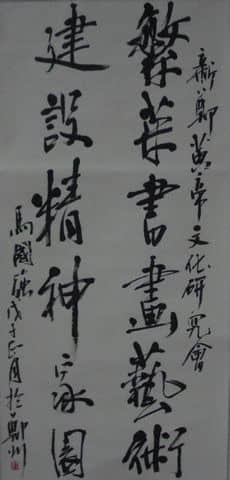 新鄭黃帝文化研究會
繁荣書畫藝術
建設精神家園
馬國強戊子正月於鄭州